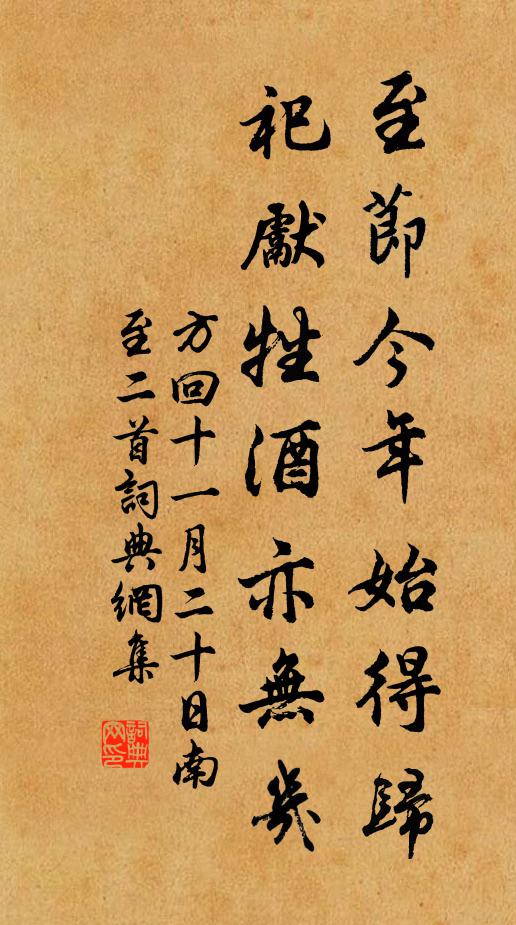 至節今年始得歸
祀獻牲酒亦無幾
方回十一月二十日南
至二首詞典網集
詞典
网印